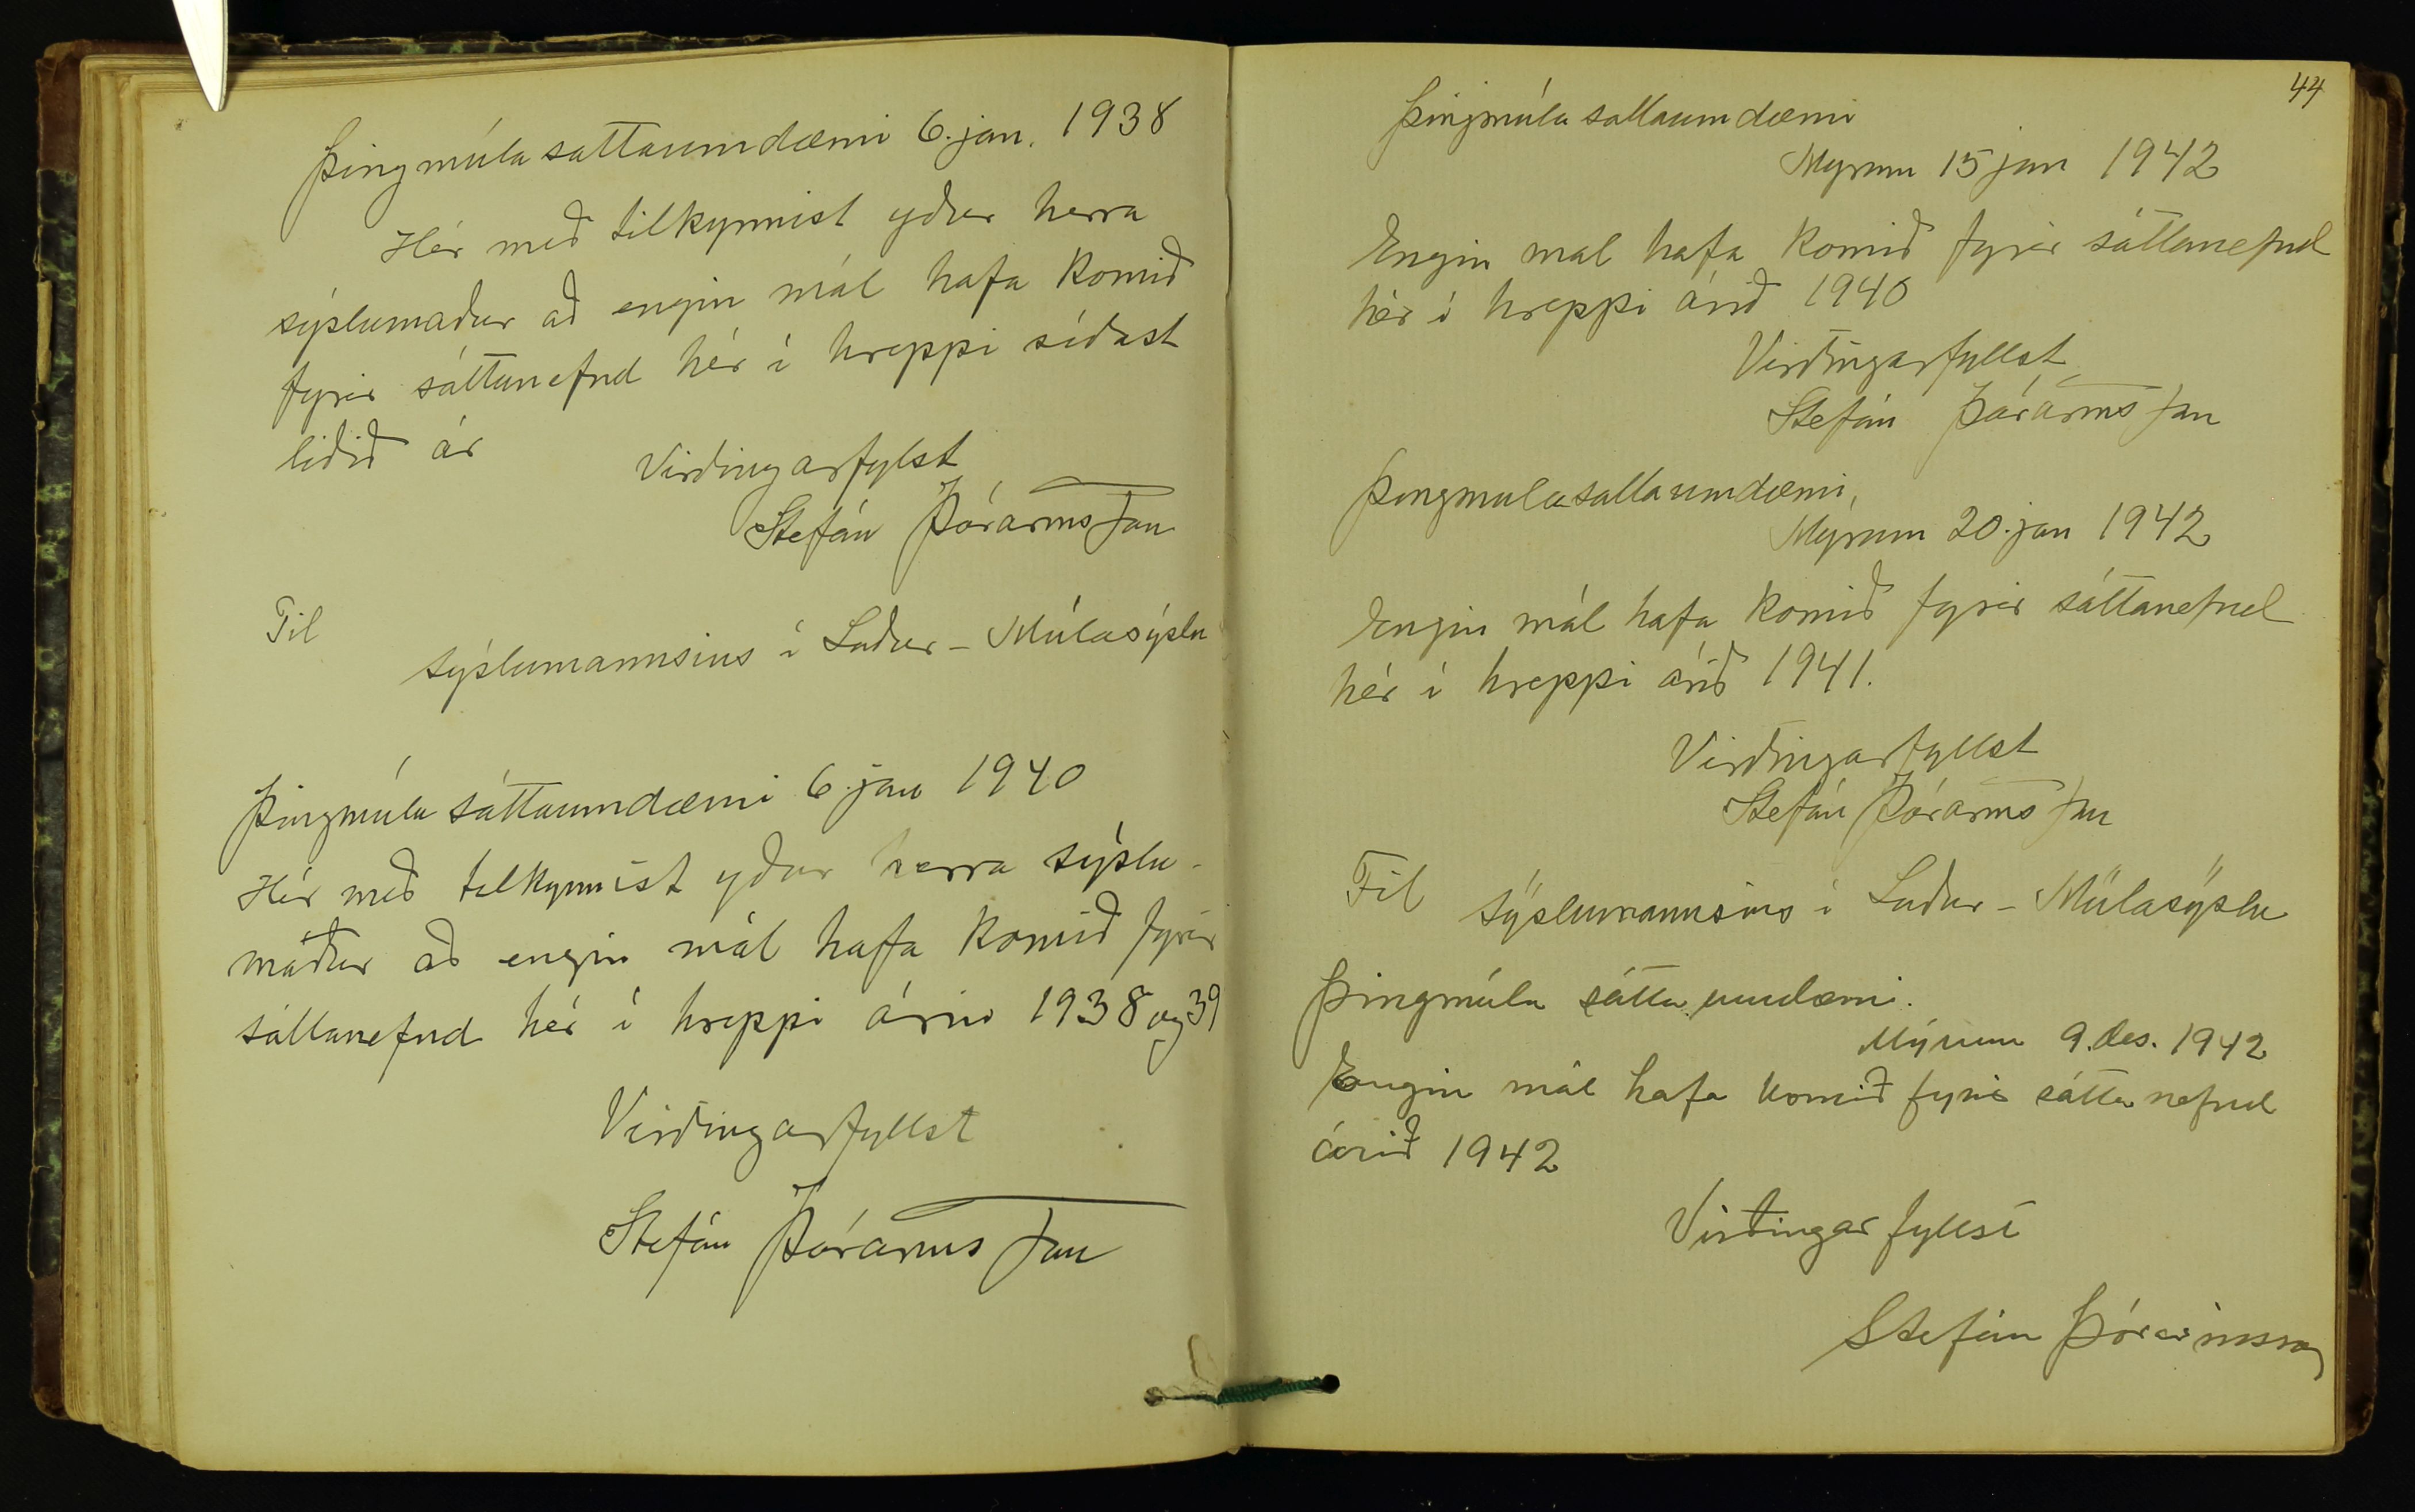 Þingmúla sattaumdæmi 6. jan. 1938
Hér með tilkynnist yður herra
sýslumaður að engin mál hafa komið
fyrir sáttanefnd hér í hreppi síðast
liðið ár
Virðingarfylst
Stefán Þórarinsson
Til
sýslumannsins í Suður-Múlasýslu
Þingmúla sáttaumdæmi 6. jan 1940
Hér með tilkynnist yður herra sýslu-
maður að engin mál hafa komið fyrir
sáttanefnd hér í hreppi árin 1938 og 39
Virðingarfyllst
Stefán Þórarinsson
44
Þingmúla sattaumdæmi
Myrum 15 jan 1942
Engin mal hafa komið fyrir sáttanefnd
hér í hreppi árið 1940
Virðingarfyllst
Stefán Þórarinsson
Þingmula sattaumdæmi,
Mýrum 20. jan 1942
Engin mál hafa komið fyrir sáttanefnd
hér í hreppi árið 1941.
Virðingarfyllst
Stefán Þórarinsson
Til sýslumannsins í Suður-Múlasýslu
Þingmúla sáttaumdæmi.
Mýrum 9. des. 1942
Engin mál hafa komið fyrir sáttanefnd
árið 1942
Virðingarfyllst
Stefán Þórarinsson